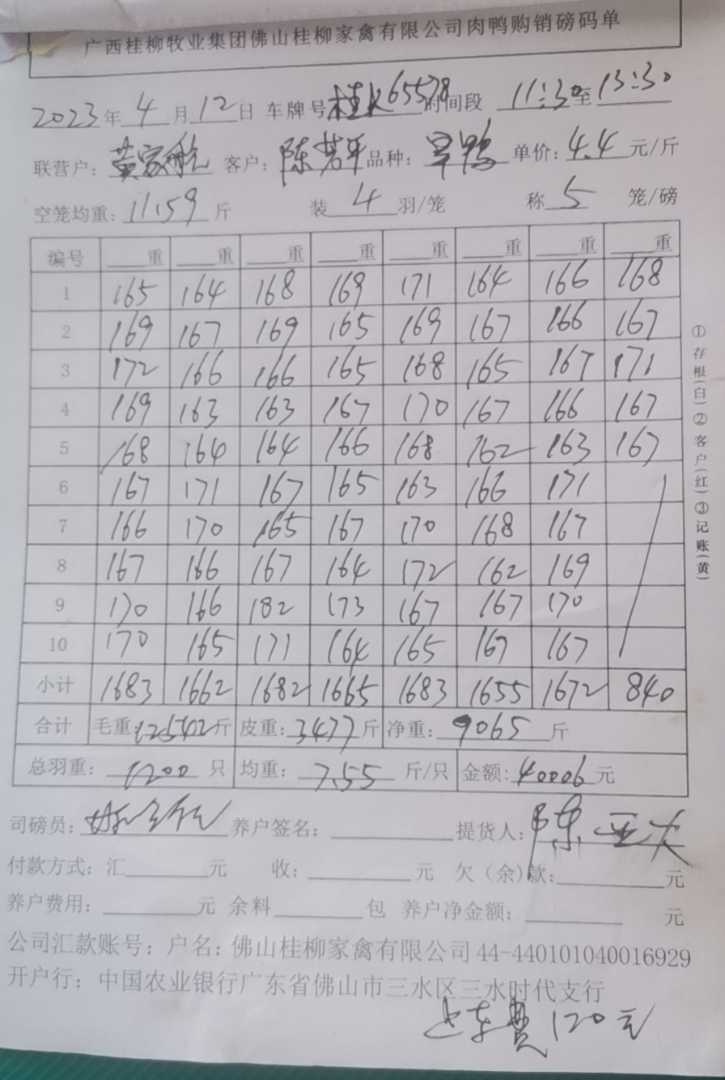 广西桂柳牧业集团佛山桂柳家禽有限公司肉鸭购销磅码单
2023年 4 月 12 日 车牌号 桂K65578 时间段 11:30 至 13:30
联营户: 黄家航 客户: 陈若平 品种: 旱鸭 单价: 4.4 元/斤
空笼均重: 11.59 斤 装 4 羽/笼 称 5 笼/磅
编号 重 重 重 重 重 重 重 重
1 165 164 168 169 171 164 166 168
2 169 167 169 165 169 167 166 167
3 172 166 166 165 168 165 167 171
4 169 163 163 167 170 167 166 167
5 168 164 164 166 168 162 163 167
6 167 171 167 165 163 166 171
7 166 170 165 167 170 168 167
8 167 166 167 164 172 162 169
9 170 166 182 173 167 167 170
10 170 165 171 164 165 167 167
小计 1683 1662 1682 1665 1683 1655 1672 840
合计 毛重: 12542 斤 皮重: 3477 斤 净重: 9065 斤
总羽重: 1200 只 均重: 7.55 斤/只 金额: 40006 元
司磅员: 养户签名: 提货人: 陈亚大
付款方式: 汇 元 收: 元 欠(余)款: 元
养户费用: 元 余料 包 养户净金额: 元
公司汇款账号: 户名: 佛山桂柳家禽有限公司 44-440101040016929
开户行: 中国农业银行广东省佛山市三水区三水时代支行
车费120元
①存根(白)②客户(红)③记账(黄)